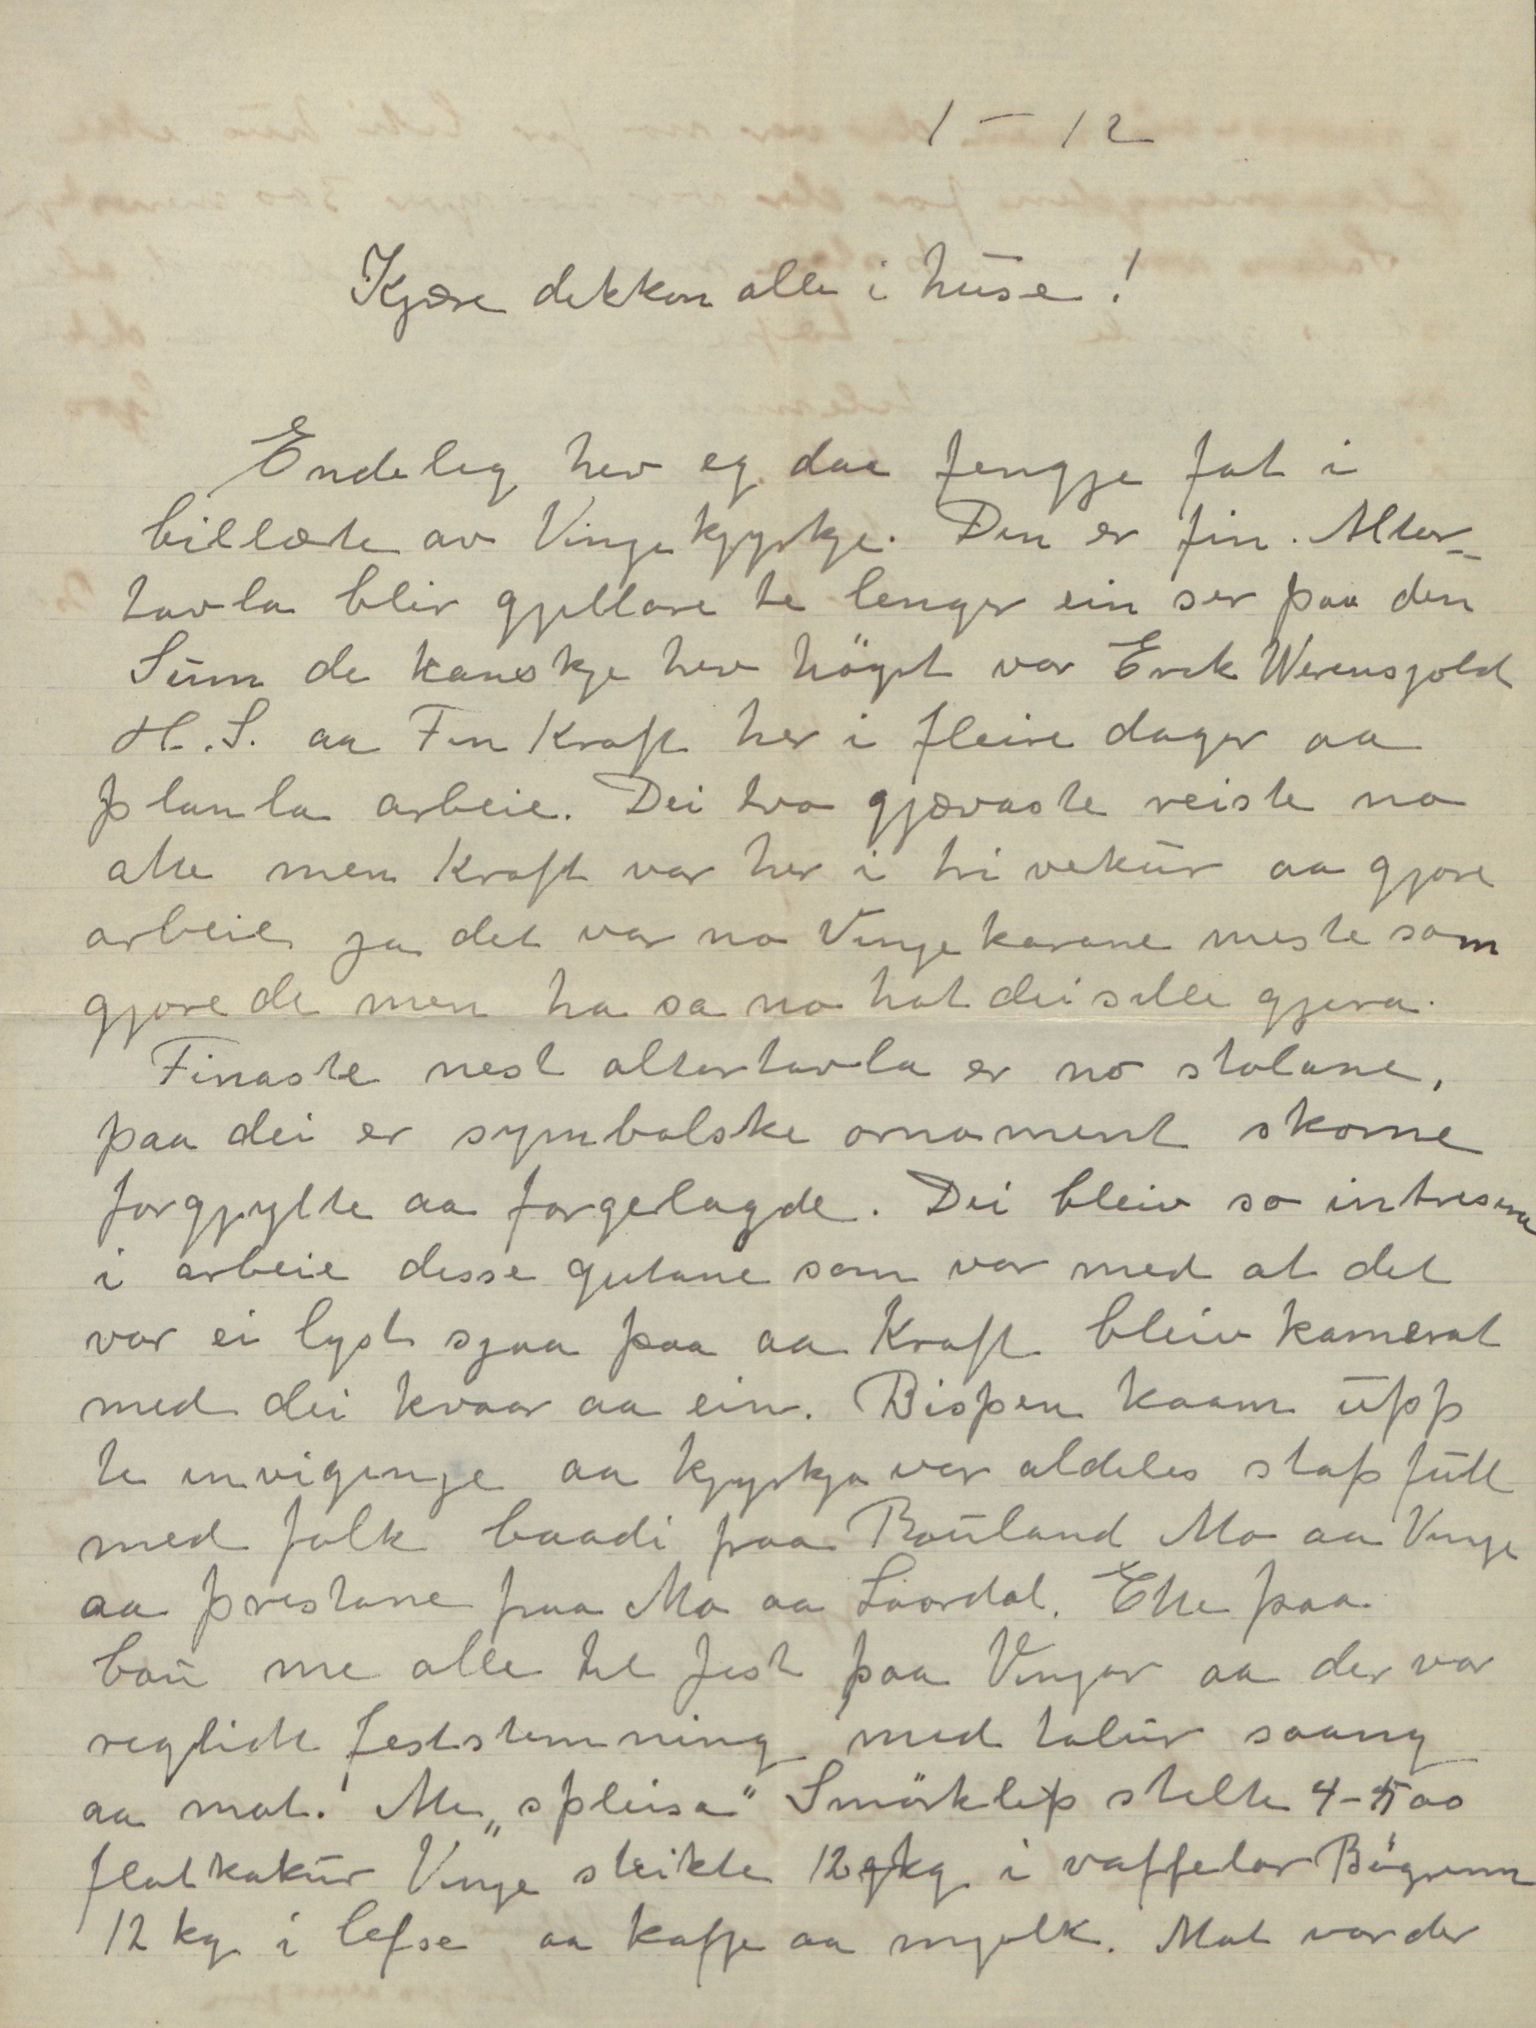 1 – 12
Kjære dekkon alle i huse!
Endeleg hev eg daa fengje fat i
billæte av Vinje kjyrkje. Den er fin. Altar-
tavla blir gjillare te lenger ein ser paa den
Sum de kanskje hev høyrt var Erik Werensjold
H. S. aa Fin Kraft her i fleire dagar aa
planla arbeie. Dei tvo gjævaste reiste no
atte men Kraft var her i tri vekur aa gjore
arbeie ja det var no Vinjekarane meste som
gjore de men ha sa no hot dei sille gjera.
Finaste nest altartavla er no stolane,
paa dei er symbolske ornament skorne
forgjyllte aa fargelagde. Dei bleiv so intresera
i arbeie desse gutane som var med at det
var ei lyst sjaa paa aa Kraft bleiv kamerat
med dei kvaar aa ein. Bispen kaam upp
te invigjinge aa kjyrkja var aldeles stapfull
med folk baadi fraa Rauland Mo aa Vinje
aa prestane fraa Mo aa Laardal. Ette paa
bau me alle til fest paa Vinjar aa der var
reglidt feststemning med talur saang
aa mat. Me „spleisa" Smörklepp stelte 4-500
flatkakur Vinje steikte 12 kg i vaffelar Bögrenn
12 kg i lefse aa kaffe aa mjølk. Mat var der